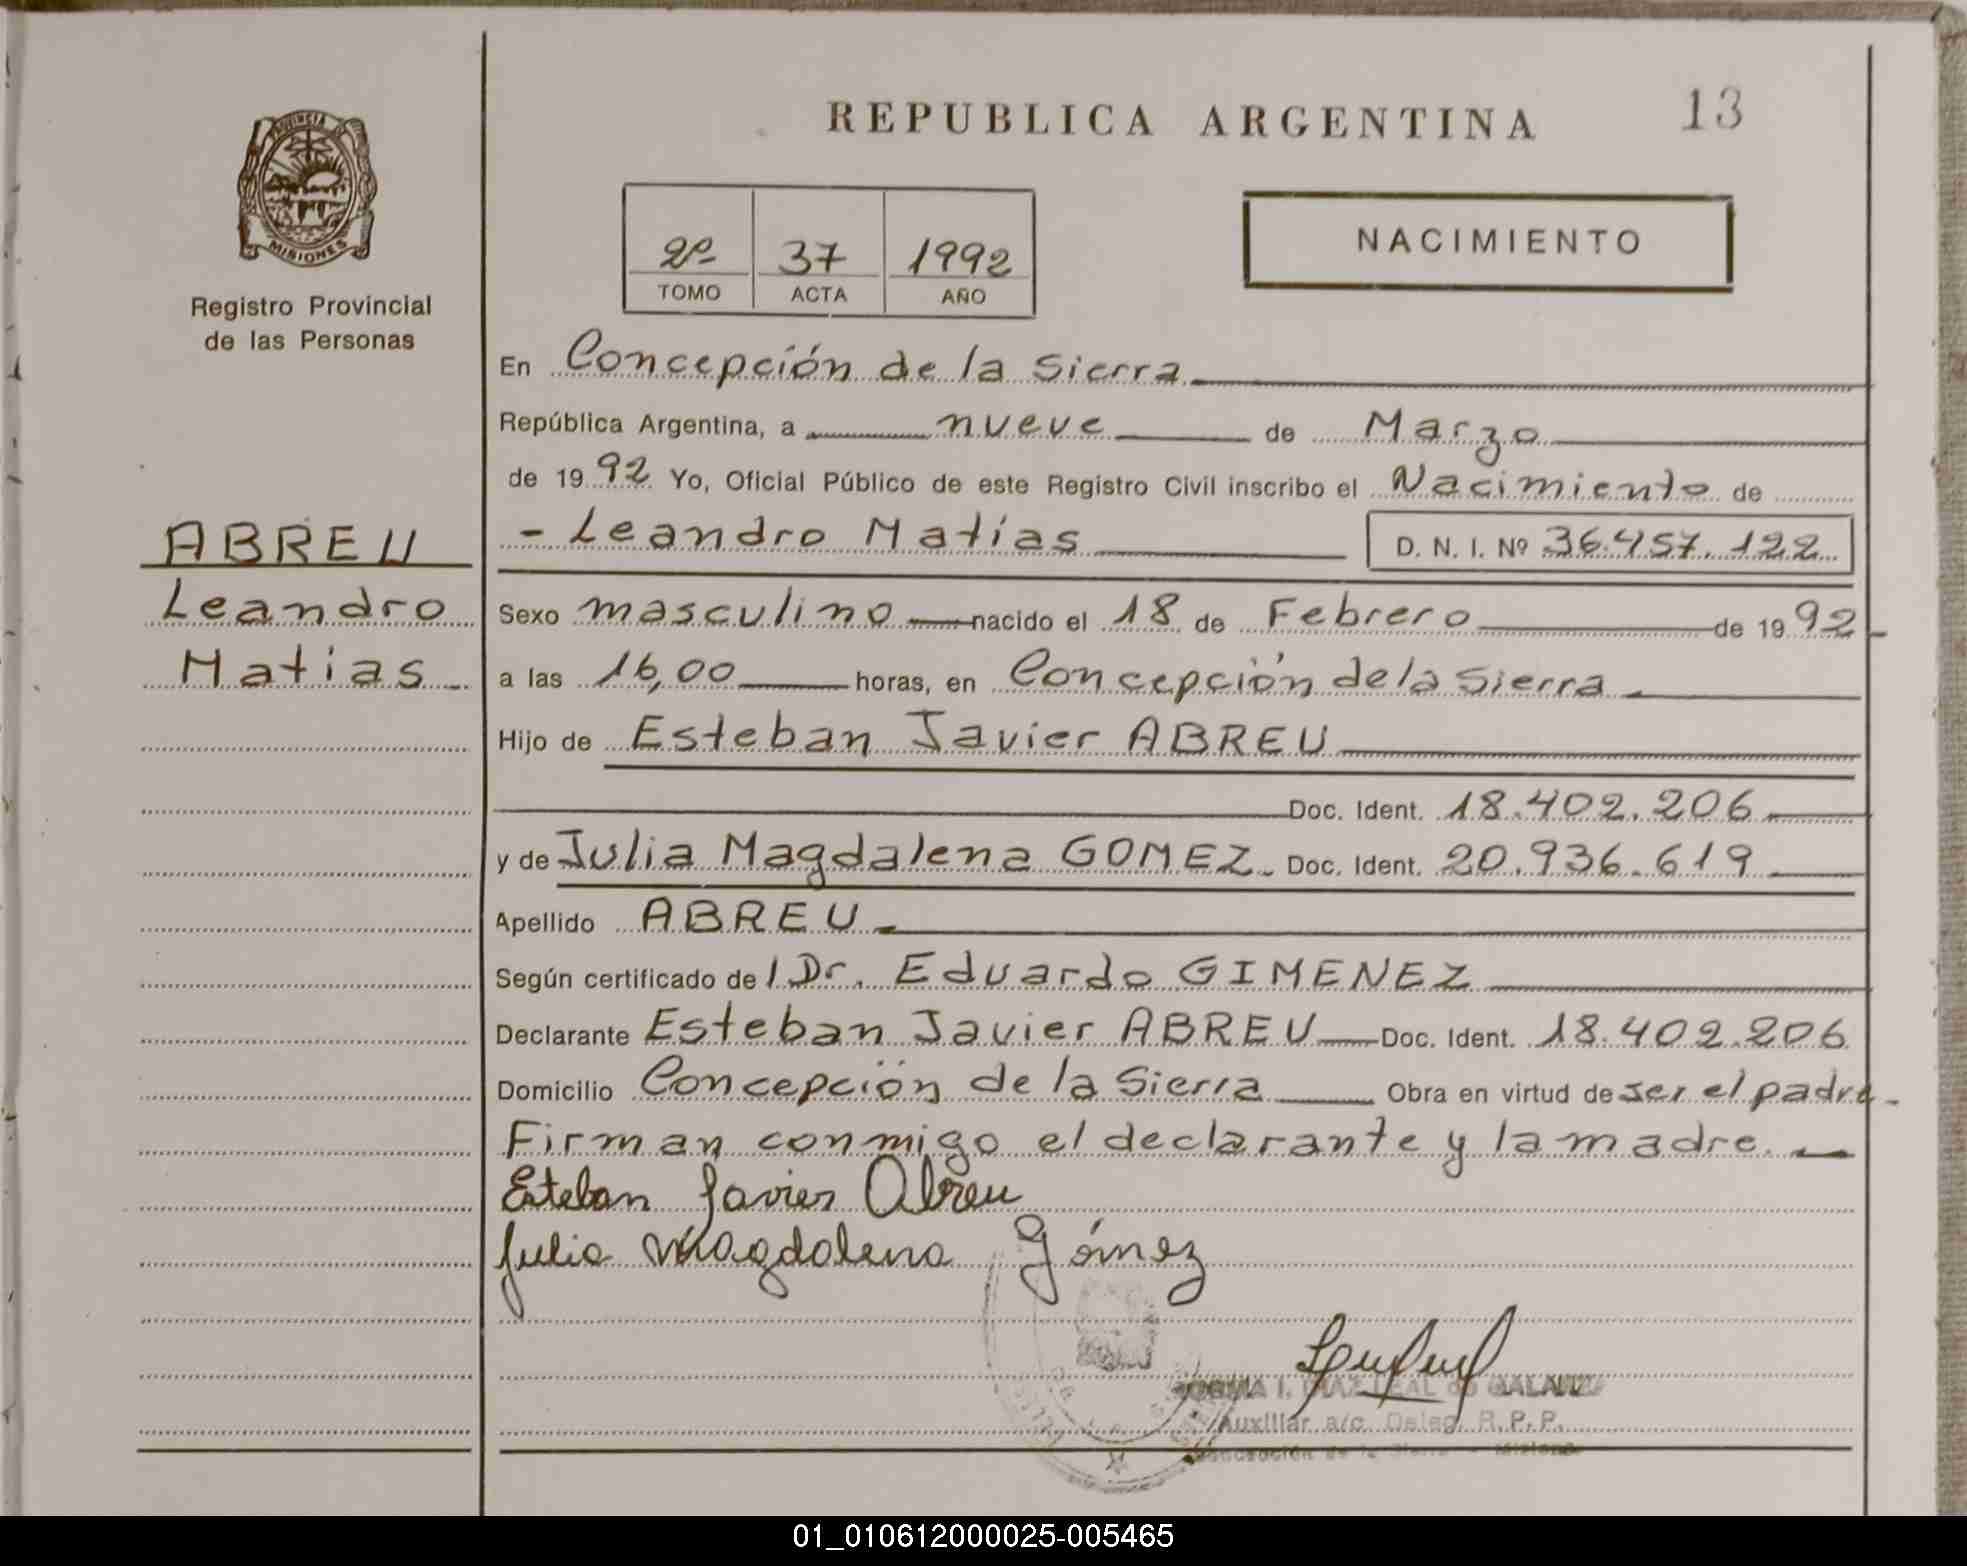 REPUBLICA ARGENTINA
13
PROVINCIA DE
MISIONES
Registro Provincial
de las Personas
2º 37 1992
TOMO ACTA AÑO
NACIMIENTO
ABREU
Leandro
Matias
En Concepción de la Sierra
República Argentina, a nueve de Marzo
de 1992 Yo, Oficial Público de este Registro Civil inscribo el Nacimiento de
- Leandro Matías D. N. I. Nº 36.457.122
Sexo masculino nacido el 18 de Febrero de 1992
a las 16,00 horas, en Concepción de la Sierra
Hijo de Esteban Javier ABREU
Doc. Ident. 18.402.206
y de Julia Magdalena GOMEZ Doc. Ident. 20.936.619
Apellido ABREU
Según certificado de l Dr. Eduardo GIMENEZ
Declarante Esteban Javier ABREU Doc. Ident. 18.402.206
Domicilio Concepción de la Sierra Obra en virtud de ser el padre.
Firman conmigo el declarante y la madre.
Esteban Javier Abreu
Julia Magdalena Gómez
I. DIAZ LEAL de
Auxiliar a/c. Deleg. R.P.P.
Concepción de la Sierra - Misiones
01_010612000025-005465